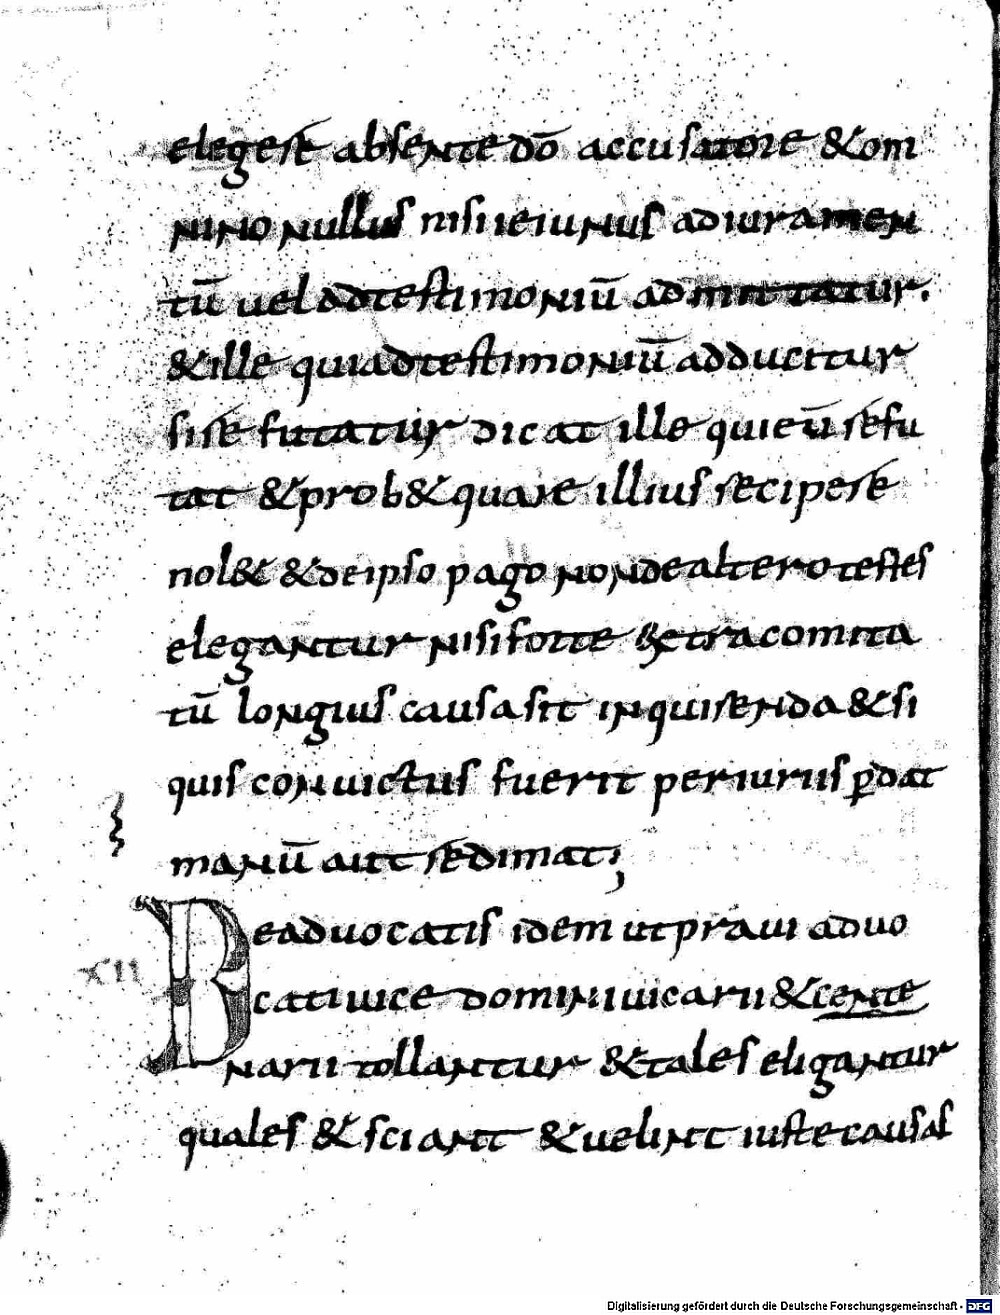 elegere absente dō accusatore & om
nino nullus nisi ieiunus ad iuramen
tū uel ad testimoniū admittatur.
& ille qui ad testimoniū adducitur
si refutatur dicat ille qui eū refu
tat & prob& quare illius recipere
nol& & de ipso pago non de altero testes
elegantur nisi forte &tra comita
tū longius causa sit inquirenda & si
quis conuictus fuerit periuriis ꝑdat
manū aut redimat;
XII
De aduocatis id em ut praui aduo
cati uice domini uicarii & cente
narii tollantur & tales eligantur
quales & sciant & uelint iuste causas
Digitalisierung gefördert durch die Deutsche Forschungsgemeinschaft - DFG